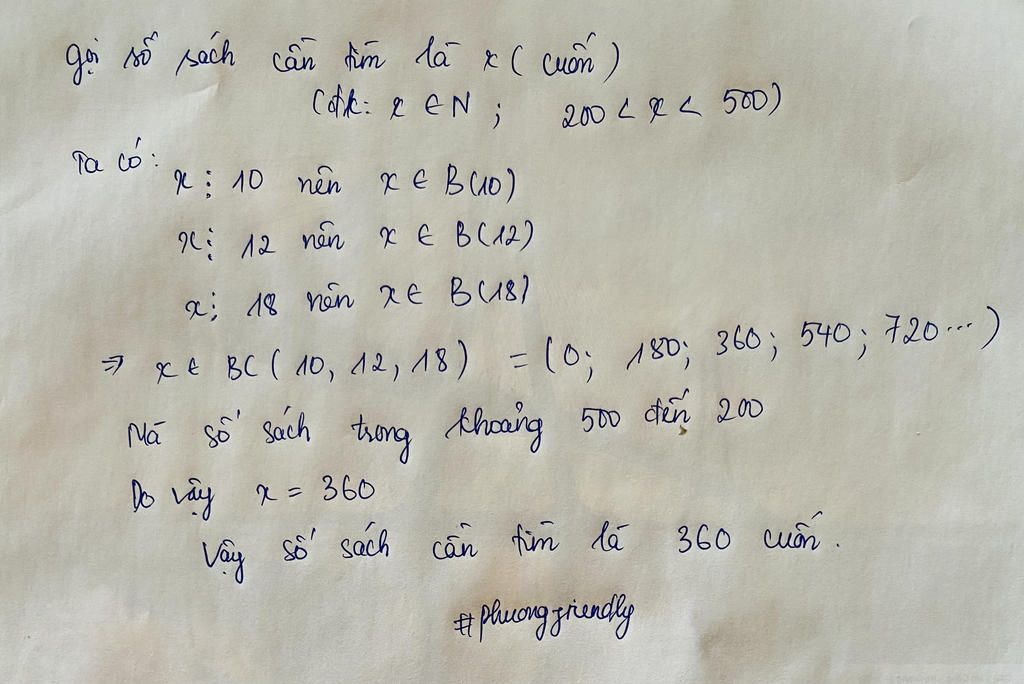 Gọi số sách cần tìm là x (cuốn)
(đk: x ∈ N; 200 < x < 500)
Ta có:
x ⋮ 10 nên x ∈ B(10)
x ⋮ 12 nên x ∈ B(12)
x ⋮ 18 nên x ∈ B(18)
⇒ x ∈ BC(10, 12, 18) = (0; 180; 360; 540; 720...)
Mà số sách trong khoảng 500 đến 200
Do vậy x = 360
Vậy số sách cần tìm là 360 cuốn.
#phuongfriendly